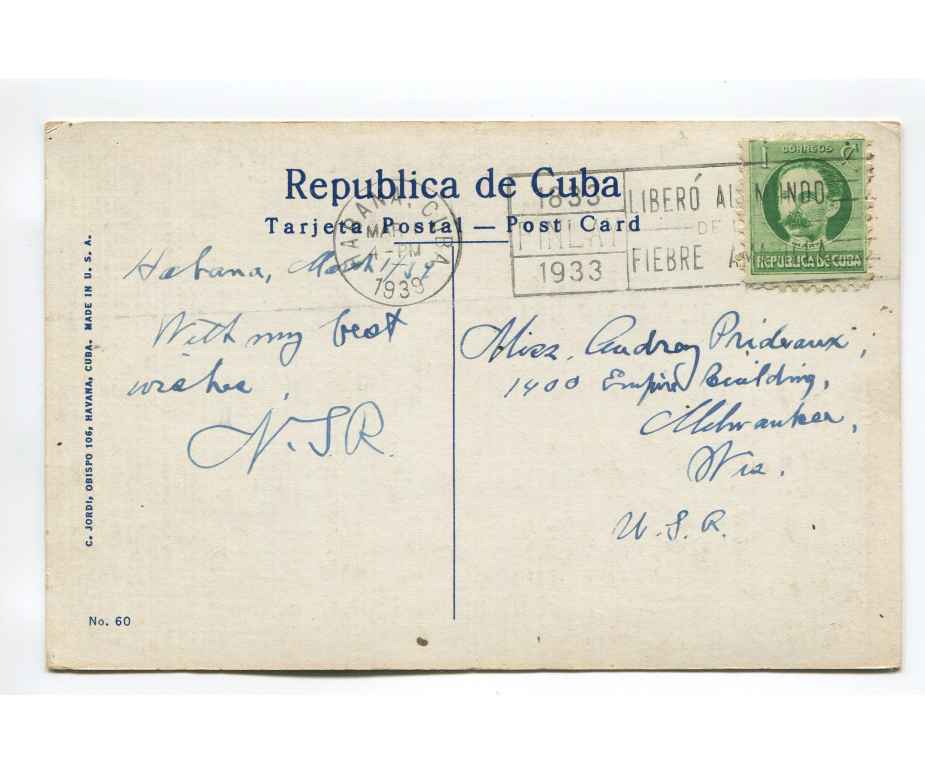 Republica de Cuba
Tarjeta Postal — Post Card
HABANA, CUBA
MAR
4 - PM
1939
1833
FINLAY
1933
LIBERÓ AL MUNDO
DE
FIEBRE
CORREOS
REPUBLICA DE CUBA
Habana, March
With my best
wishes
N.S.R.
Miss. Audrey Prideaux,
1400 Empire Building,
Milwaukee,
Wis.
U. S. A.
C. JORDI, OBISPO 106, HAVANA, CUBA. MADE IN U. S. A.
No. 60